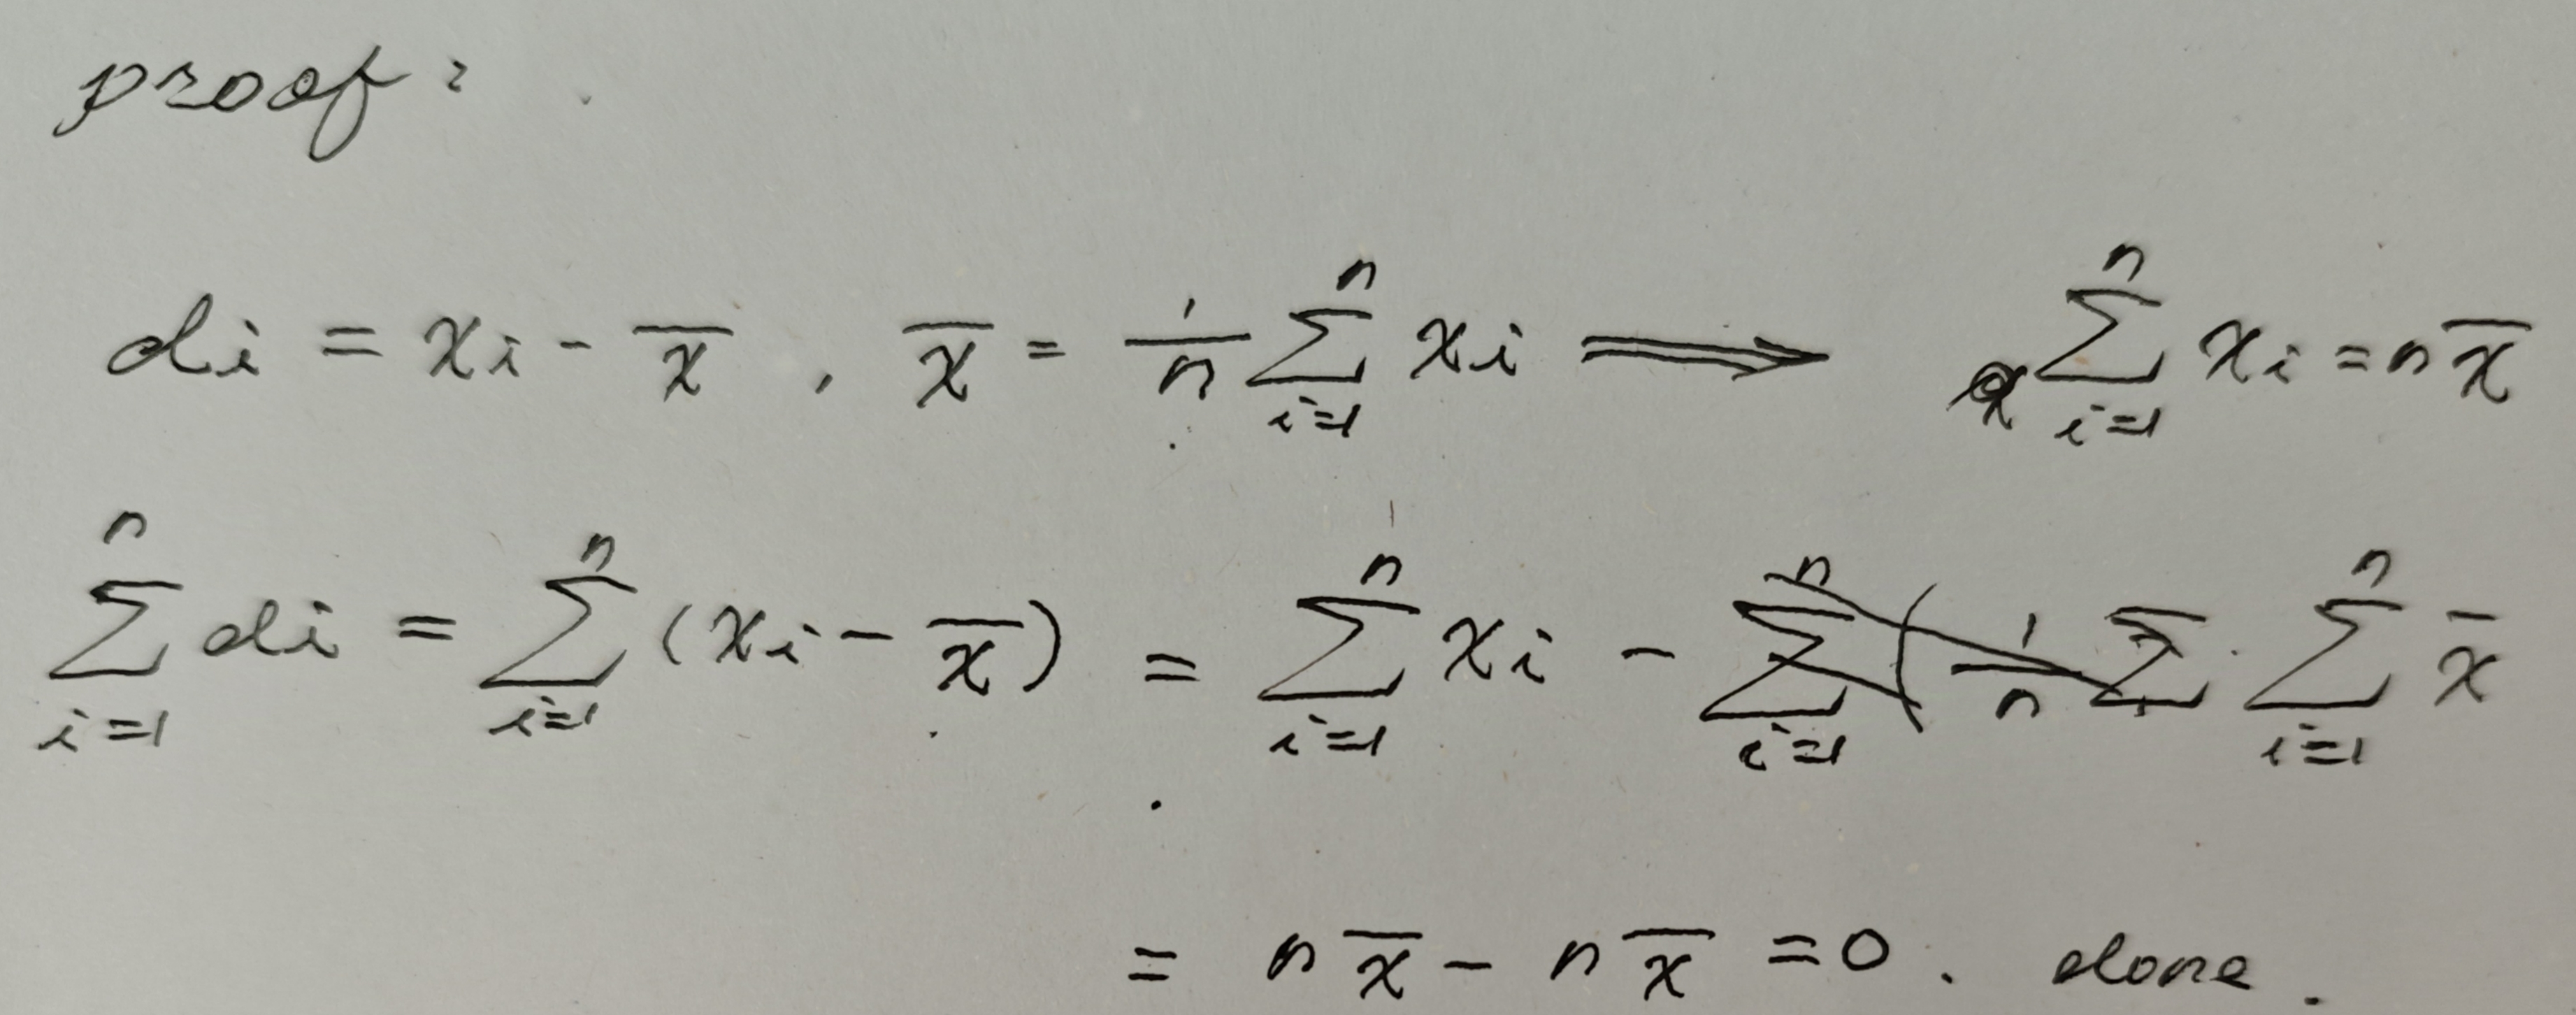 proof:
di = xi - x̄ , x̄ = 1/n ∑_{i=1}^{n} xi ⟹ ∑_{i=1}^{n} xi = n x̄
∑_{i=1}^{n} di = ∑_{i=1}^{n} (xi - x̄) = ∑_{i=1}^{n} xi - ∑_{i=1}^{n} x̄
= n x̄ - n x̄ = 0 . done .